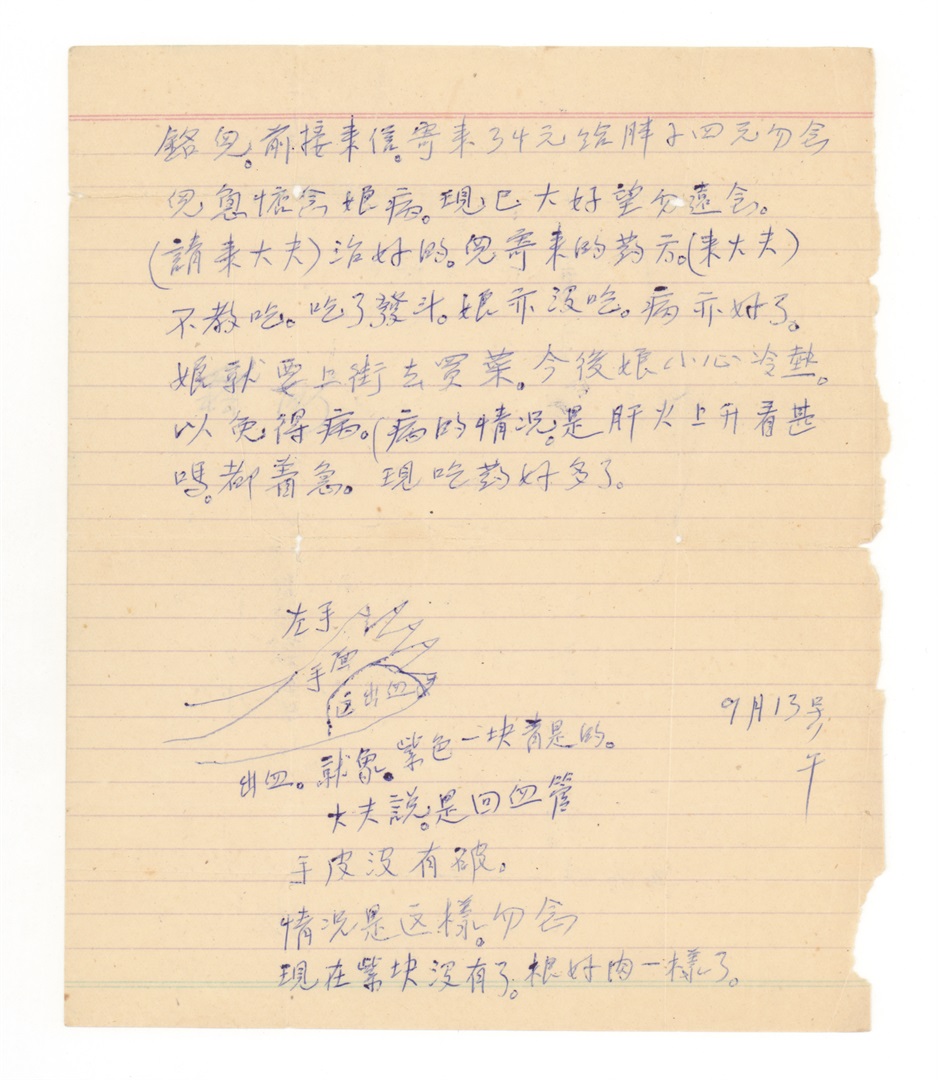 銘兒。前接来信。寄来34元给胖子四元勿念
兒急懷念娘病。現已大好望勿遠念。
(請来大夫)治好的。兒寄来的葯方。(来大夫)
不教吃。吃了發斗。娘亦没吃。病亦好了。
娘就要上街去買葉。今後娘小心冷熱。
以免得病。(病的情况。是肝火上升看甚
嗎。都着急。現吃葯好多了。
左手
手面
这出血。
9月13号
午
出血。就象。紫色一块青是的。
大夫説。是回血管
手皮没有破。
情况是这樣。勿念
現在紫块没有了。根好肉一樣了。